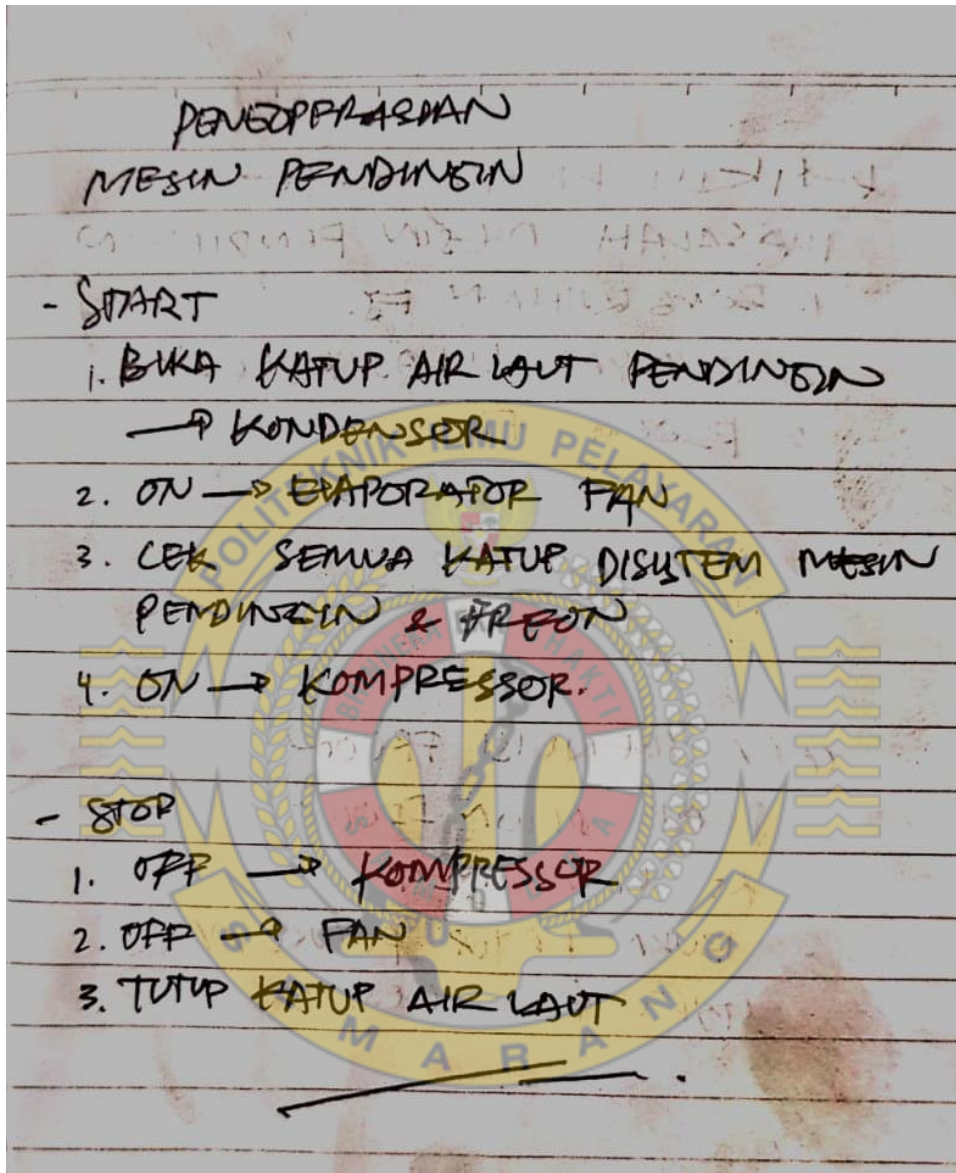 PENGOPERASIAN
MESIN PENDINGIN
- START
1. BUKA KATUP AIR LAUT PENDINGIN
→ KONDENSOR
2. ON → EVAPORATOR FAN
3. CEK SEMUA KATUP DISISTEM MESIN
PENDINGIN & FREON
4. ON → KOMPRESSOR.
- STOP
1. OFF → KOMPRESSOR
2. OFF → FAN
3. TUTUP KATUP AIR LAUT
POLITEKNIK ILMU PELAYARAN
SEMARANG